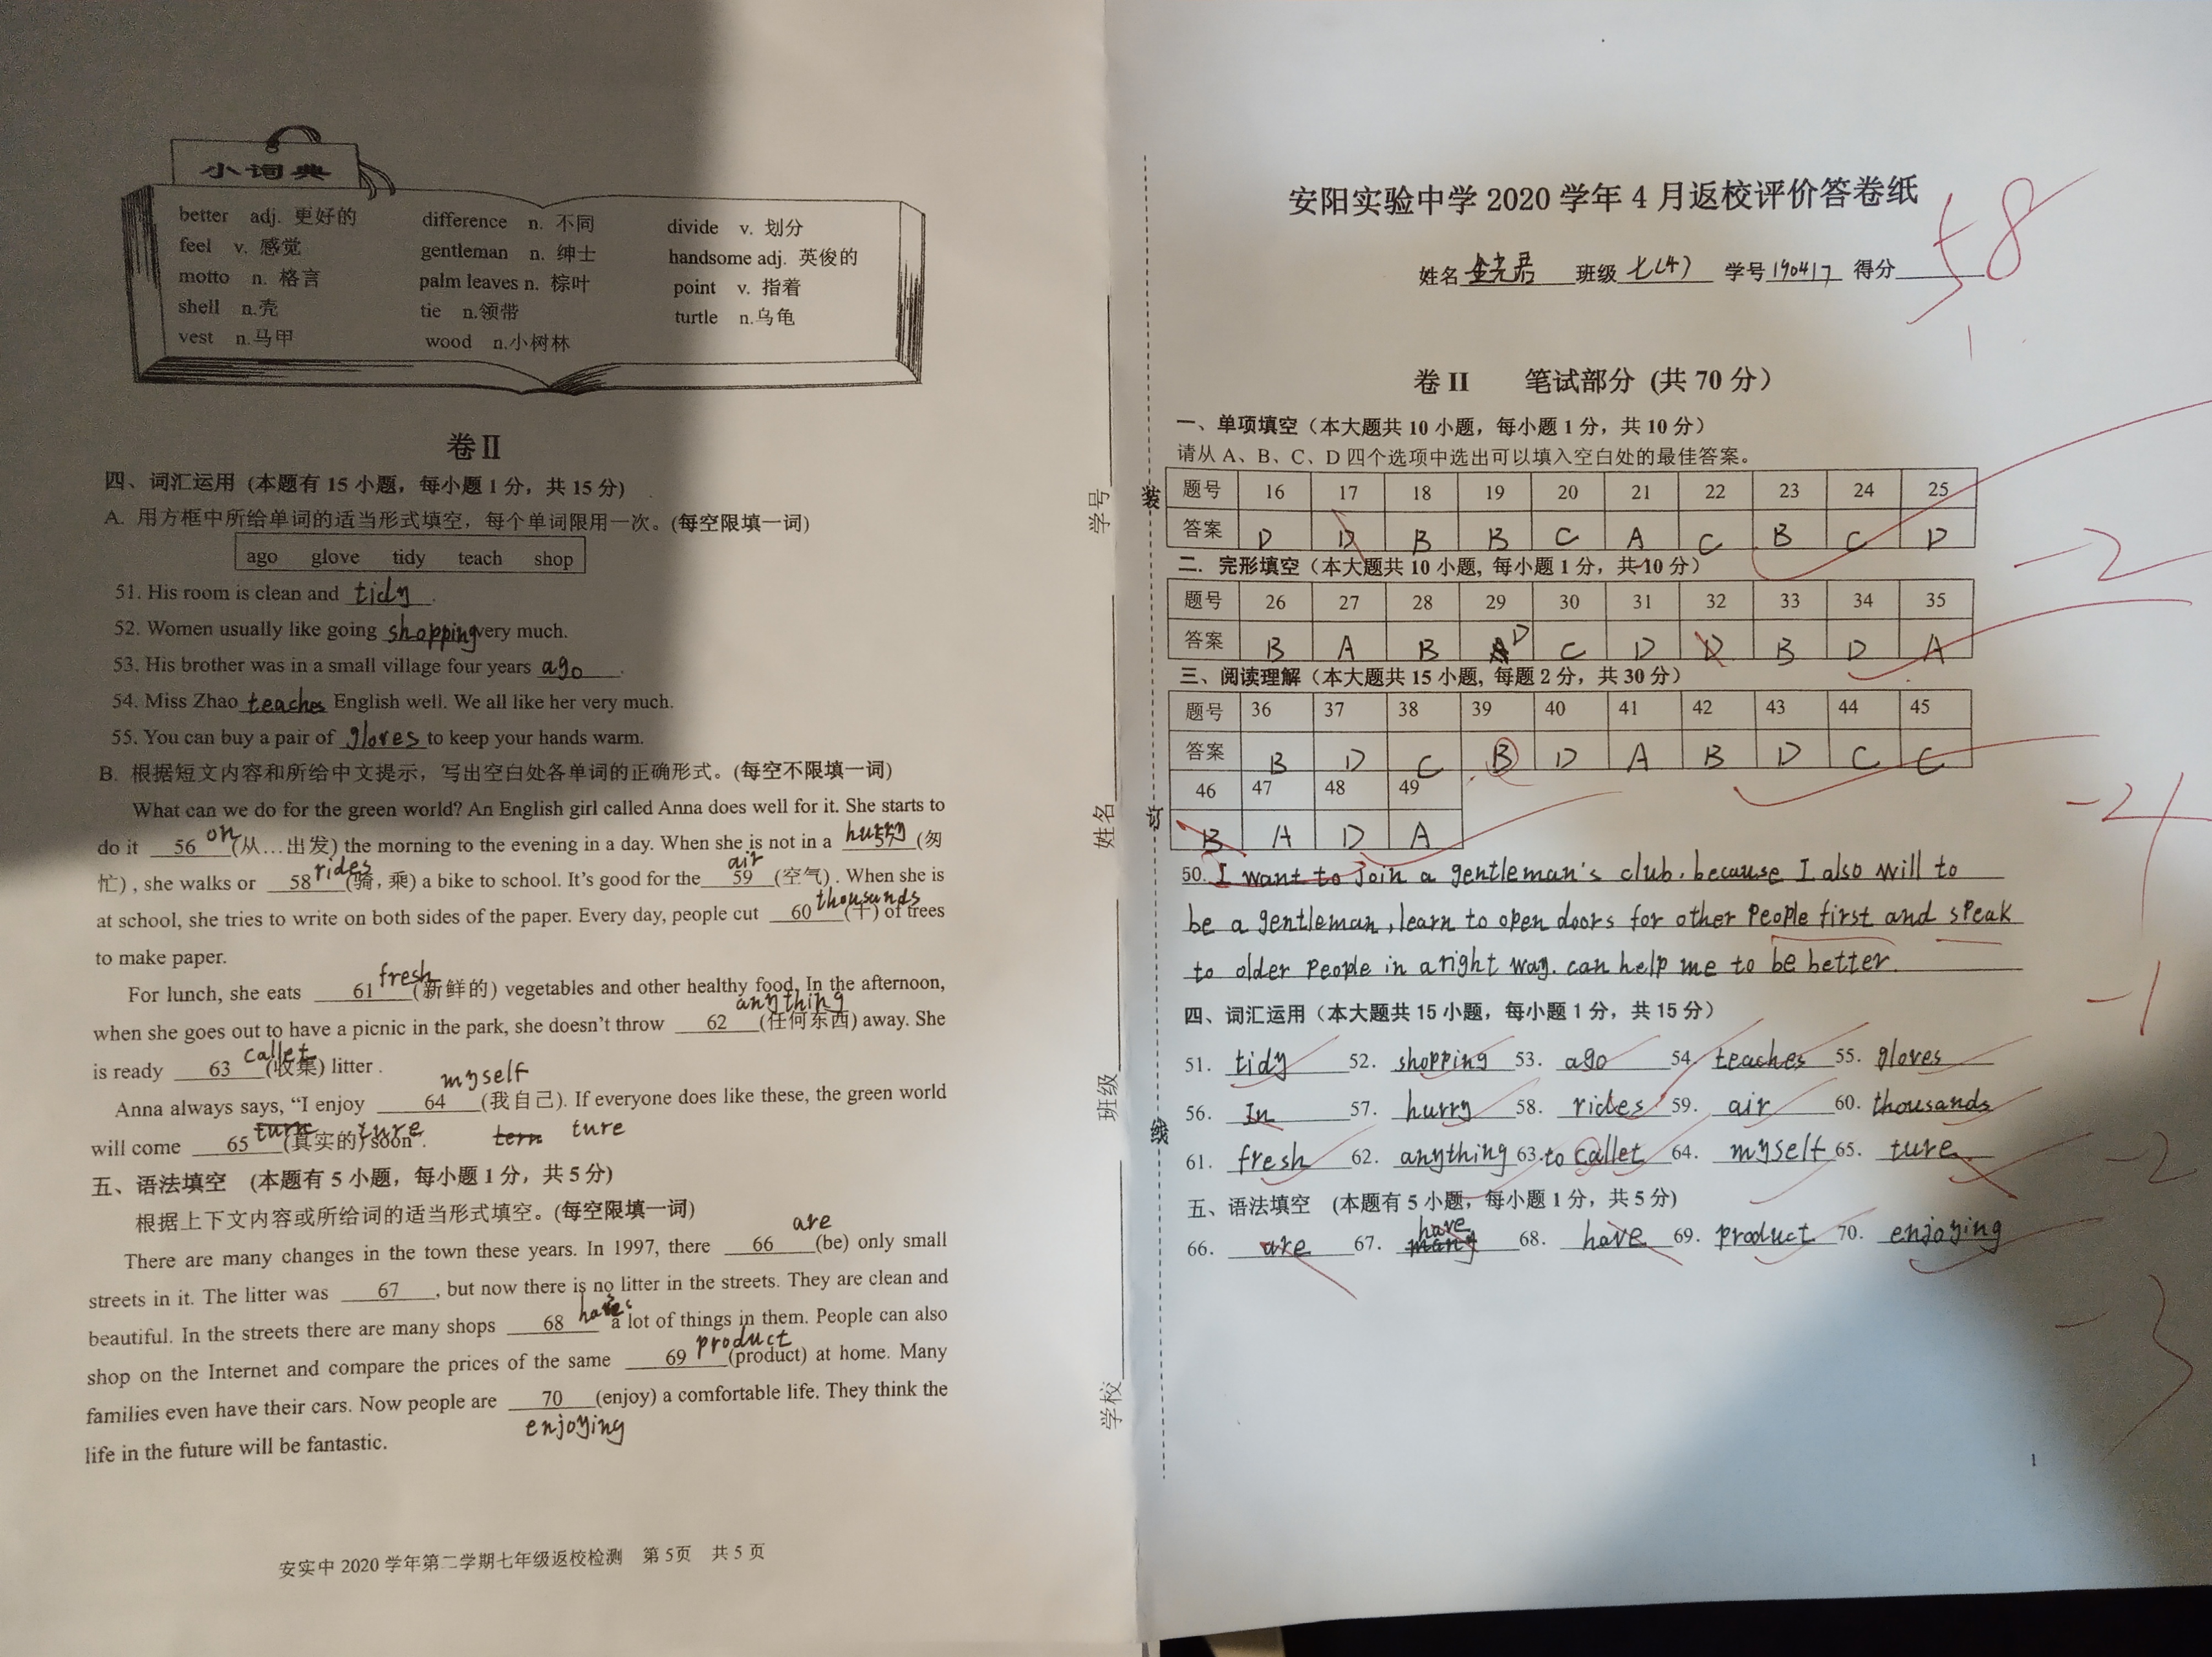 小词典
better adj. 更好的 difference n. 不同 divide v. 划分
feel v. 感觉 gentleman n. 绅士 handsome adj. 英俊的
motto n. 格言 palm leaves n. 棕叶 point v. 指着
shell n.壳 tie n.领带 turtle n.乌龟
vest n.马甲 wood n.小树林
卷Ⅱ
四、词汇运用 (本题有 15 小题，每小题 1 分，共 15 分)
A. 用方框中所给单词的适当形式填空，每个单词限用一次。(每空限填一词)
ago glove tidy teach shop
51. His room is clean and tidy.
52. Women usually like going shopping very much.
53. His brother was in a small village four years ago.
54. Miss Zhao teaches English well. We all like her very much.
55. You can buy a pair of gloves to keep your hands warm.
B. 根据短文内容和所给中文提示，写出空白处各单词的正确形式。(每空不限填一词)
What can we do for the green world? An English girl called Anna does well for it. She starts to
do it 56 on (从…出发) the morning to the evening in a day. When she is not in a hurry (匆
忙) , she walks or 58 rides (骑，乘) a bike to school. It's good for the 59 air (空气) . When she is
at school, she tries to write on both sides of the paper. Every day, people cut 60 thousands (千) of trees
to make paper.
For lunch, she eats 61 fresh (新鲜的) vegetables and other healthy food. In the afternoon,
when she goes out to have a picnic in the park, she doesn't throw 62 anything (任何东西) away. She
is ready 63 callet (收集) litter .
Anna always says, “I enjoy 64 myself (我自己). If everyone does like these, the green world
will come 65 ture (真实的) soon”. ture
五、语法填空 (本题有 5 小题，每小题 1 分，共 5 分)
根据上下文内容或所给词的适当形式填空。(每空限填一词)
There are many changes in the town these years. In 1997, there 66 are (be) only small
streets in it. The litter was 67 , but now there is no litter in the streets. They are clean and
beautiful. In the streets there are many shops 68 a lot of things in them. People can also
shop on the Internet and compare the prices of the same 69 product (product) at home. Many
families even have their cars. Now people are 70 (enjoy) a comfortable life. They think the
enjoying
life in the future will be fantastic.
安实中 2020 学年第二学期七年级返校检测 第 5页 共 5 页
学号
姓名
班级
学校
装
订
线
安阳实验中学 2020 学年 4 月返校评价答卷纸
58
姓名 班级 七(4) 学号 190417 得分
卷 II 笔试部分 (共 70 分）
一、单项填空（本大题共 10 小题，每小题 1 分，共 10 分）
请从 A、B、C、D 四个选项中选出可以填入空白处的最佳答案。
题号 16 17 18 19 20 21 22 23 24 25
答案 D D B B C A C B C D
二. 完形填空（本大题共 10 小题, 每小题 1 分，共 10 分）
-2
题号 26 27 28 29 30 31 32 33 34 35
答案 B A B D C D D B D A
三、阅读理解（本大题共 15 小题, 每题 2 分，共 30 分）
题号 36 37 38 39 40 41 42 43 44 45
答案 B D C B D A B D C C
46 47 48 49
-4
B A D A
50. I want to join a gentleman's club. because I also will to
be a gentleman, learn to open doors for other people first and speak
to older people in a right way. can help me to be better.
-1
四、词汇运用（本大题共 15 小题，每小题 1 分，共 15 分）
51. tidy 52. shopping 53. ago 54. teaches 55. gloves
56. In 57. hurry 58. rides 59. air 60. thousands
61. fresh 62. anything 63. to callet 64. myself 65. ture
-2
五、语法填空 (本题有 5 小题，每小题 1 分，共 5 分)
66. are 67. have 68. have 69. product 70. enjoying
-3
1